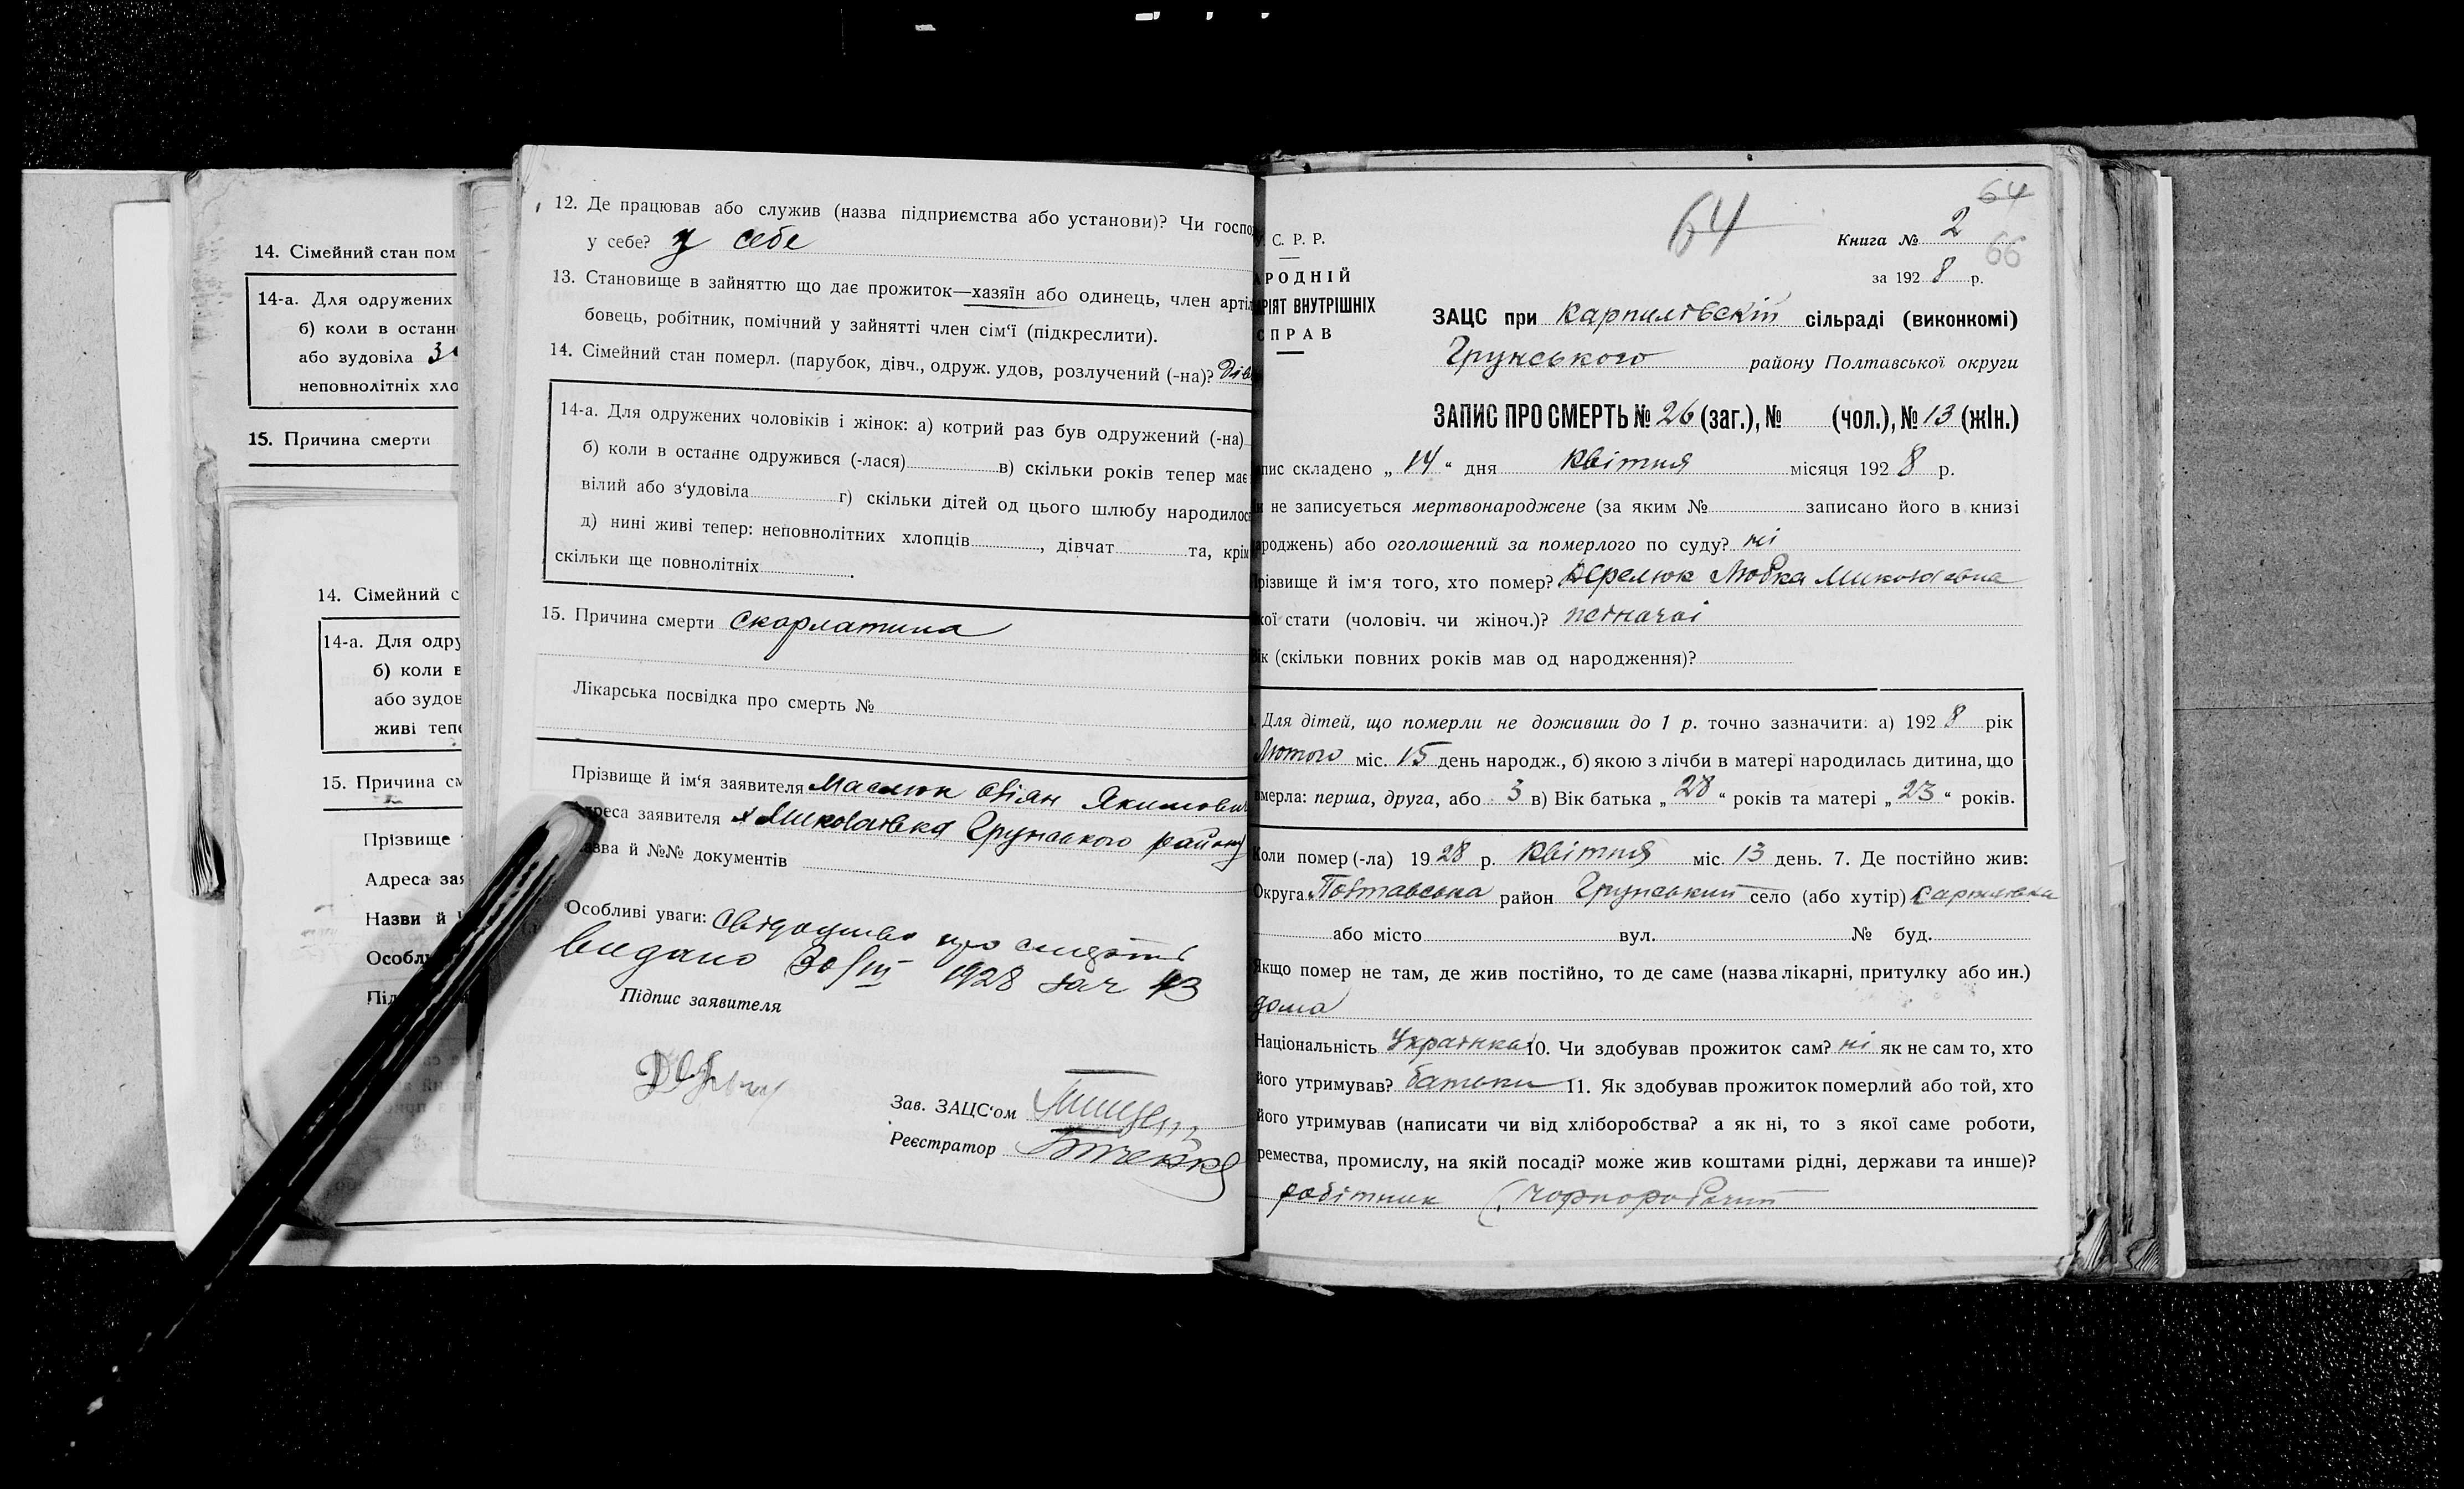 14. Сімейний стан пом
14-а. Для одружених
б) коли в останн
або зудовіла
неповнолітніх хло
15. Причина смерти
14. Сімейний с
14-а. Для одру
б) коли в
або зудов
живі тепе
15. Причина см
Прізвище
Адреса зая
Назви й
Особли
Під
12. Де працював або служив (назва підприємства або установи)? Чи госпо
у себе? у себе
13. Становище в зайняттю що дає прожиток—хазяїн або одинець, член арті
бовець, робітник, помічний у зайнятті член сім'ї (підкреслити).
14. Сімейний стан померл. (парубок, дівч., одруж. удов, розлучений (-на)? дів
14-а. Для одружених чоловіків і жінок: а) котрий раз був одружений (-на)
б) коли в останнє одружився (-лася) в) скільки років тепер має
вілий або з'удовіла г) скільки дітей од цього шлюбу народилос
д) нині живі тепер: неповнолітних хлопців , дівчат та, крім
скільки ще повнолітніх .
15. Причина смерти скорлатина
Лікарська посвідка про смерть №
Прізвище й ім'я заявителя Маслюк Овіян Якимович
Адреса заявителя х Миколаівка Грунського району
Назва й №№ документів
Особливі уваги: Свідоцтво про смерть
видано 30/III 1928 за № 43
Підпис заявителя
Зав. ЗАЦС'ом
Реєстратор
64
64
66
Книга № 2
за 1928 р.
У. С. Р. Р.
АРОДНІЙ
АРІЯТ ВНУТРІШНІХ
СПРАВ
ЗАЦС при Карпилівскій сільраді (виконкомі)
Грунського району Полтавської округи
ЗАПИС ПРО СМЕРТЬ № 26 (заг.), № (чол.), № 13 (жін.)
пис складено „14“ дня Квітня місяця 1928 р.
и не записується мертвонароджене (за яким № записано його в книзі
ароджень) або оголошений за померлого по суду? ні
різвище й ім'я того, хто помер? Любка Миколаевна
кої стати (чоловіч. чи жіноч.)?
ік (скільки повних років мав од народження)?
Для дітей, що померли не доживши до 1 р. точно зазначити: а) 1928 рік
Лютого міс. 15 день народж., б) якою з лічби в матері народилась дитина, що
вмерла: перша, друга, або 3 в) Вік батька „28“ років та матері „23“ років.
Коли помер (-ла) 1928 р. Квітня міс. 13 день. 7. Де постійно жив:
Округа Полтавська район Грунський село (або хутір) Карпилівка
або місто вул. № буд.
Якщо помер не там, де жив постійно, то де саме (назва лікарні, притулку або ин.)
дома
Національність Українка 10. Чи здобував прожиток сам? ні як не сам то, хто
його утримував? батьки 11. Як здобував прожиток померлий або той, хто
його утримував (написати чи від хліборобства? а як ні, то з якої саме роботи,
ремества, промислу, на якій посаді? може жив коштами рідні, держави та инше)?
робітник (чорноробочий